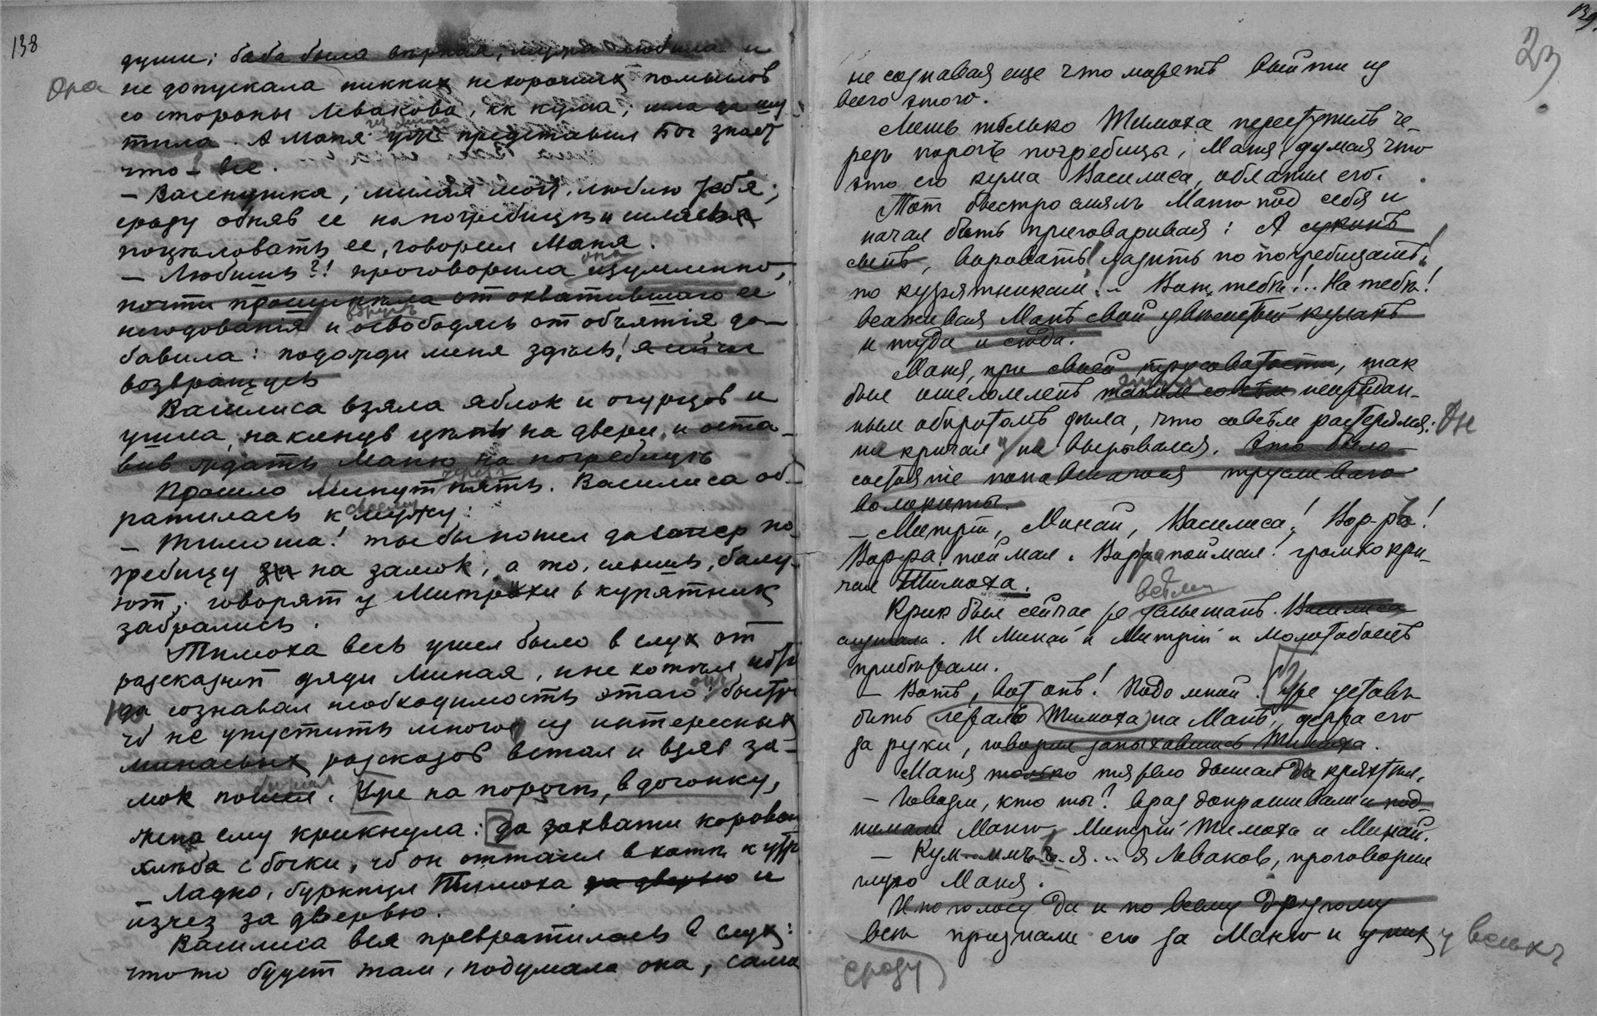 138
души; баба была верная, мужа любила и
Она не допускала никких нехороших помыслов
со стороны Левакова, кк кума; шла да шу
тила. А Маня уж представил Бог знает
что – все.
– Васенушка, милая моя, люблю тебя;
сразу обняв ее на погребице и
поцеловать ее, говорил Маня.
– Любишь?! проговорила она изумленно,
почти от охватившаго ее
негодованiя и освободясь от объятiя до–
бавила: подожди меня здесь!
возвращусь
Василиса взяла яблок и огурцов и
ушла, накинув цепь на двери, и оста–
вив ждать Маню на погребице
Прошло минут пять. Василиса об–
ратилась к своему мужу:
– Тимоша! ты бы пошел да запер по
гребицу на замок, а то, слышь, балу–
ют; говорят у Митрохи в курятник
забрались.
Тимоха весь ушел было в слух от
разсказов дяди Миная, и не хотел
да сознавал необходимость этого
чб не упустить много из интересных
разсказов встал и взяв за–
мок пошел. Уже на пороге, вдогонку,
жена ему крикнула: да захвати каровай
хлеба с бочки, чб он оттаял в хате к утру
– Ладно, буркнул Тимоха за дверью и
изчез за дверью.
Василиса вся превратилась в слух:
что то будет там, подумала она, сама
139
23
не сознавая еще что может выйти из
всего этого.
Лишь только Тимоха переступил че–
рез порог погребицы, Маня, думая что
это его кума Василиса, облапил его.
Тот быстро смял Маню под себя и
начал бить приговаривая: А сукинъ
сынъ, воровать! лазить по погребицамъ,
по курятникам!.. Вот тебе!.. На тебе!
всаживая Мане свой увесистый кулак
и туда и сюда.
Маня, при своей трусоватости, так
был ошеломленъ таким совсем неожидан–
ным оборотом дела, что совсем растерялся: Он
не кричал и не вырывался. Это было
состоянiе попавшагося трусливаго
волокиты.
– Митрiй, Минай, Василиса! Вор-ръ!
Вор-ра поймал. Вор-ра поймал! громко кри–
чал Тимоха.
Крик был сейчас же всеми услышан. Василиса
слушала. И Минай и Митрiй и молотобоецъ
прибежали.
– Вотъ, вот онъ! Подо мной. Уже уставъ
бить лежал Тимоха на Мане, держа его
за руки, говорил запыхавшись Тимоха.
Маня только тяжело дышал да кряхтел.
– Говори, кто ты? враз допрашивали и под–
нимали Маню, Митрiй Тимоха и Минай.
– Кум... я... я Леваков, проговорил
глухо Маня.
И по голосу да и по всему другому
все признали его за Маню и у всех
сразу